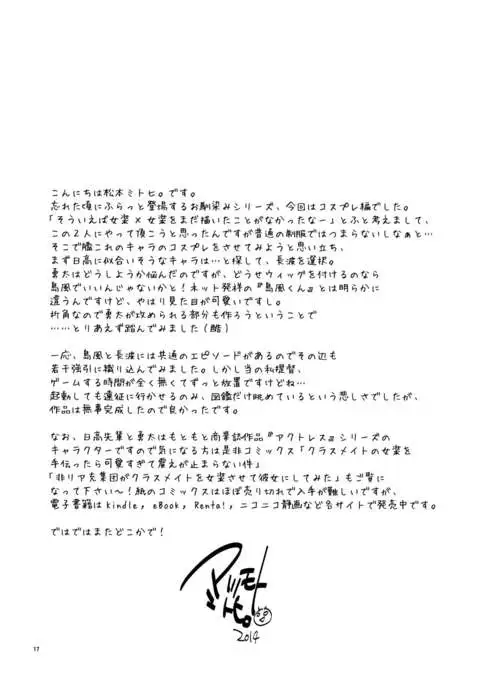 こんにちは松本ミトヒ。です。
忘れた頃にふらっと登場するお馴染みシリーズ、今回はコスプレ編でした。
「そういえば女装×女装をまだ描いたことがなかったなー」とふと考えまして、
この2人にやって頂こうと思ったんですが普通の制服ではつまらないしなぁと…
そこで艦これのキャラのコスプレをさせてみようと思い立ち、
まず日高に似合いそうなキャラは…と探して、長波を選択。
勇太はどうしようか悩んだのですが、どうせウィッグを付けるのなら
島風でいいんじゃないかと!ネット発祥の『島風くん』とは明らかに
違うんですけど、やはり見た目が可愛いですし。
折角なので勇太が攻められる部分も作ろうということで
……とりあえず踏んでみました(酷)
一応、島風と長波には共通のエピソードがあるのでその辺も
若干強引に織り込んでみました。しかし当の私提督、
ゲームする時間が全く無くてずっと放置ですけどね…
起動しても遠征に行かせるのみ、図鑑だけ眺めているという悲しさでしたが、
作品は無事完成したので良かったです。
なお、日高先輩と勇太はもともと商業誌作品『アクトレス』シリーズの
キャラクターですので気になる方は是非コミックス「クラスメイトの女装を
手伝ったら可愛すぎて震えが止まらない件」
「非リア充集団がクラスメイトを女装させて彼女にしてみた」もご覧に
なって下さい〜!紙のコミックスはほぼ売り切れで入手が難しいですが、
電子書籍はkindle, eBook, Renta!, ニコニコ静画など各サイトで発売中です。
ではではまたどこかで!
マツモト
ミトヒ。
2014
17